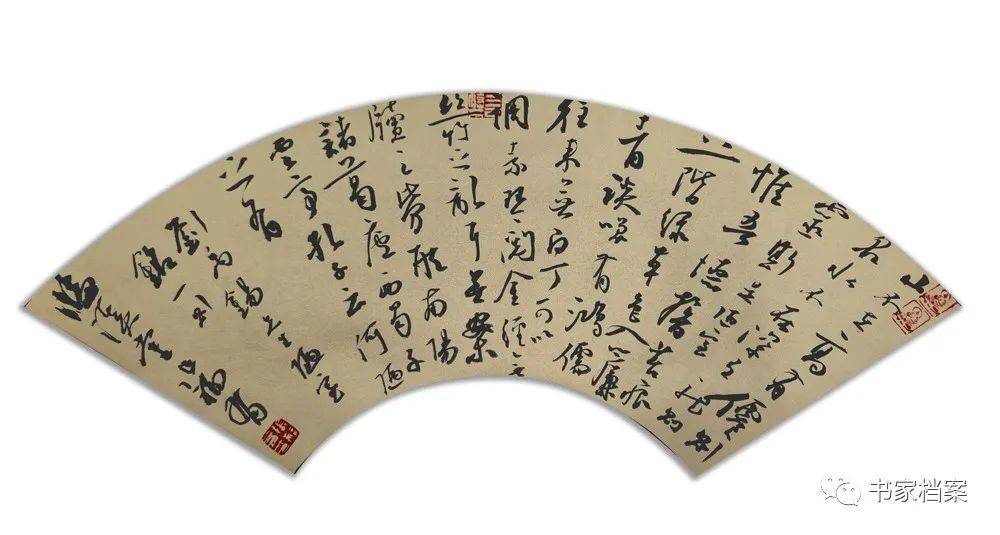 山不在高有僊則
名水不在深有龍則
靈斯是陋室
惟吾德馨苔痕
上階綠草色入簾
青談笑有鴻儒
往來無白丁可以
調素琴閱金經無
絲竹之亂耳無案
牘之勞形南陽
諸葛廬西蜀子
雲亭孔子云何陋
之有
劉禹錫先生陋室
銘一則
书家档案